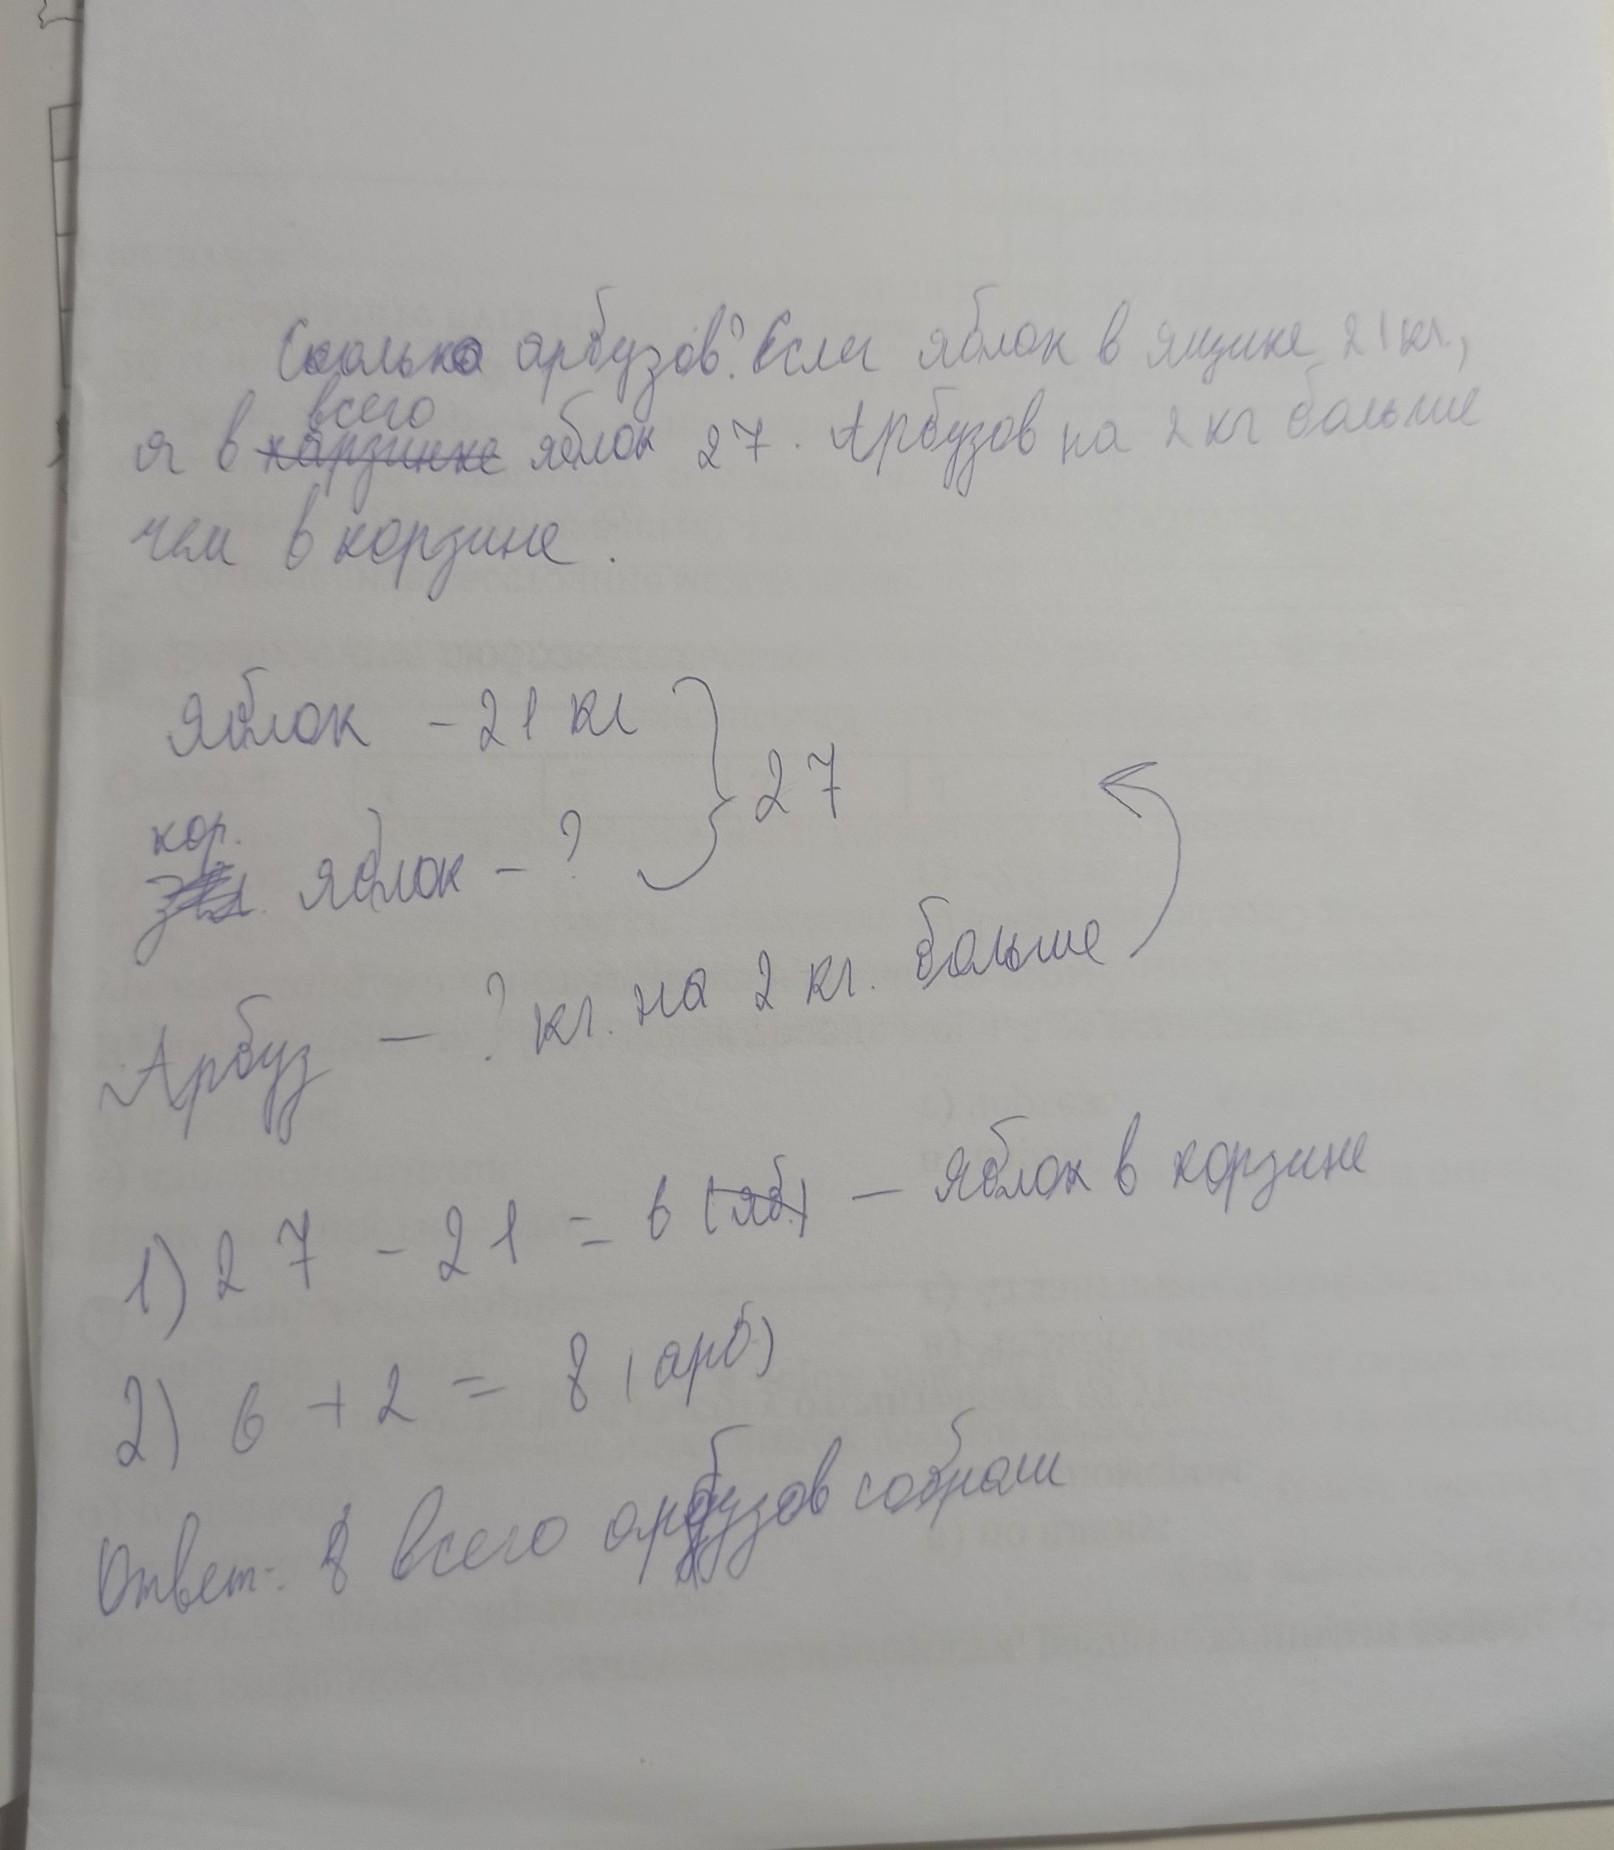 Сколько арбузов? Если яблок в ящике 21 кг.,
я в всего яблок 27. Арбузов на 2 кг больше
чем в корзине.
Яблок - 21 кг
27
кор. яблок - ?
Арбуз - ? кг. на 2 кг. больше
1) 27 - 21 = 6 (яб.) - яблок в корзине
2) 6 + 2 = 8 (арб)
Ответ: 8 всего арбузов собрали